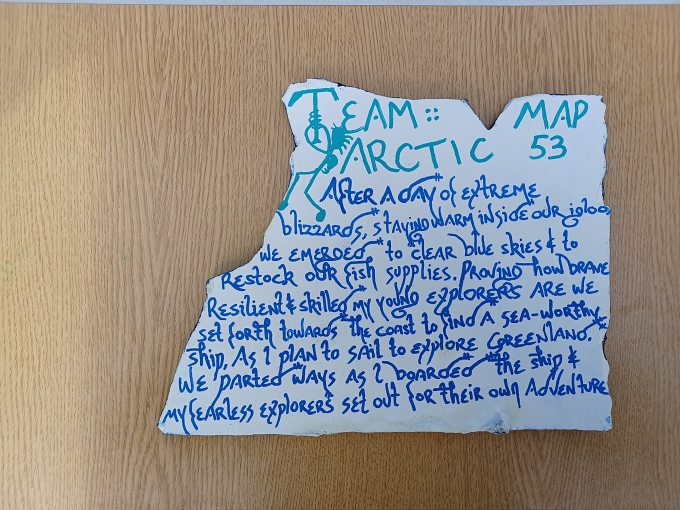 TEAM :: MAP
ARCTIC 53
AFTER A DAY of EXTREME
blizzards, STAYING WARM INSIDE OUR igloo,
WE EMERGED to CLEAR blue skies & to
RESTOCK OUR fish supplies. PROVING how BRAVE
Resilient & skilled my young EXPLORERS ARE WE
set forth towards the coast to find A SEA-worthy
ship, As I plan to sail to explore Greenland.
WE PARTED WAYS AS I BOARDED the ship &
my fearless explorers set out for their own Adventure